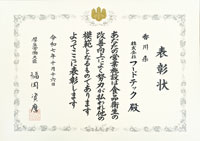 表彰状
香川県
株式会社フードテック殿
あなたの営業施設は食品衛生の
改善向上によく努力され他の
模範となるものであります
よってここに表彰します
令和七年十月十六日
厚生労働大臣
福岡資麿